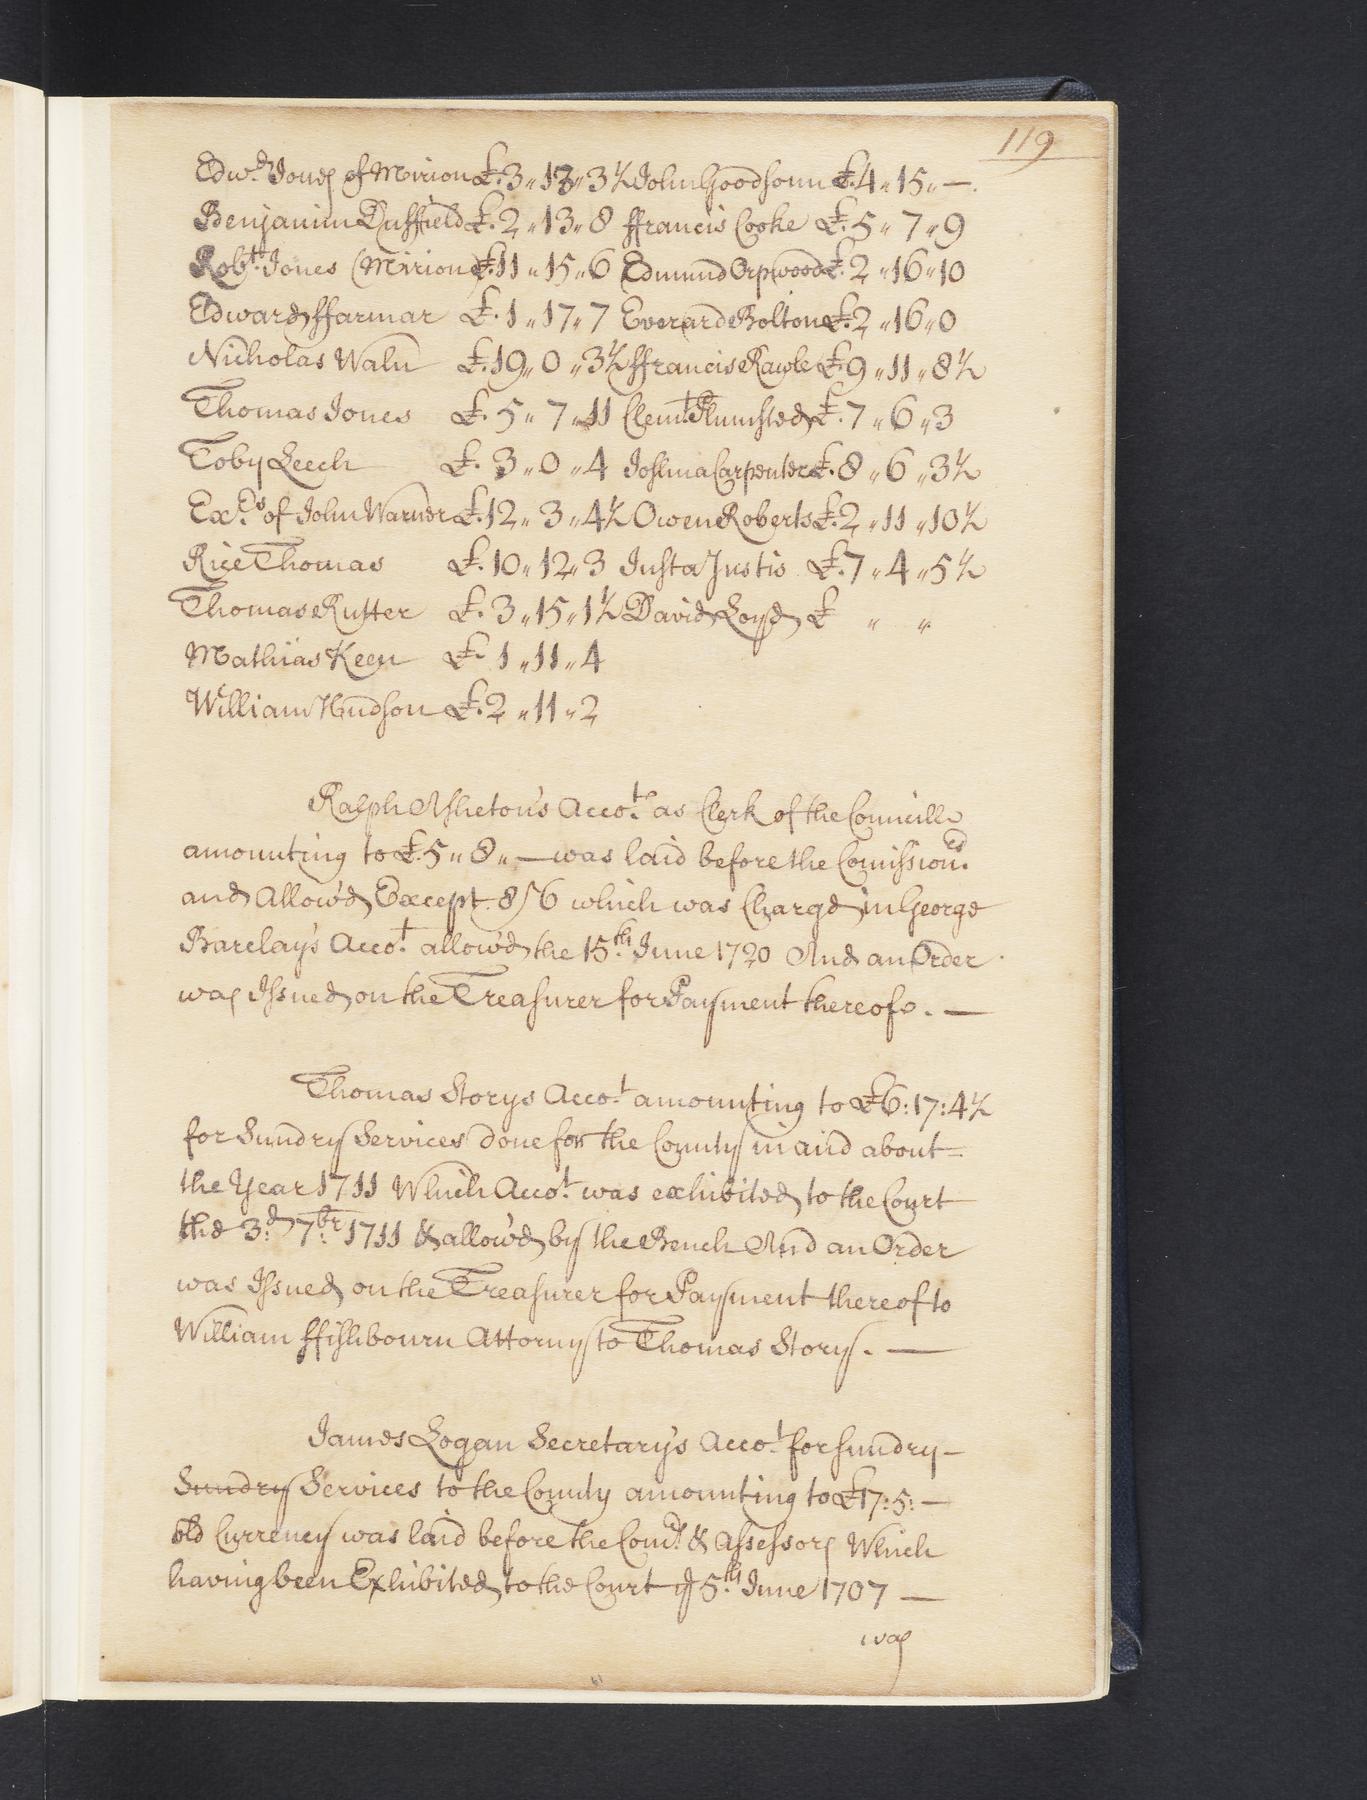 119
Edw.d Jones of Mirion £.3 " 13 " 3½ John Goodsonn £.4 " 15 " —.
Benjamin Duffield £.2 " 13 " 8 ffrancis Cooke £.5 " 7 " 9
Robt. Jones (Mirion) £.11 " 15 " 6 Edmund Orpwood £.2 " 16 " 10
Edward ffarmar £.1 " 17 " 7 Everard Bolton £.2 " 16 " 0
Nicholas Waln £.19 " 0 " 3½ ffrancis Rawle £.9 " 11 " 8½
Thomas Jones £.5 " 7 " 11 Clem.t Plumsted £.7 " 6 " 3
Toby Leech £.3 " 0 " 4 Joshua Carpenter £.8 " 6 " 3½
Ex.rs of John Warner £.12 " 3 " 4½ Owen Roberts £.2 " 11 " 10½
Rice Thomas £.10 " 12 " 3 Justa Justis £.7 " 4 " 5½
Thomas Rutter £.3 " 15 " 1½ David Loyd £ " "
Mathias Keen £.1 " 11 " 4
William Hudson £.2 " 11 " 2
Ralph Asheton's Acco.t as Clerk of the Councill
amounting to £.5 " 8 " — was laid before the Comission.rs
and Allow'd Except 8/6 which was Charg'd in George
Barclay's Acco.t allow'd the 15.th June 1720 And an Order
was Issued on the Treasurer for Payment thereof. —
Thomas Storys Acco.t amounting to £6:17:4½
for Sundry Services done for the County in and about =
the Year 1711 Which Acco.t was exhibited to the Court
the 3.d 7.br 1711 & allow'd by the Bench And an Order
was Issued on the Treasurer for Payment thereof to
William ffishbourn Attorny to Thomas Story. —
James Logan Secretary's Acco.t for sundry —
Sundry Services to the County amounting to £17:5: —
old Currency was laid before the Com.rs & Assessors Which
having been Exhibited to the Court ye 5.th June 1707 —
was